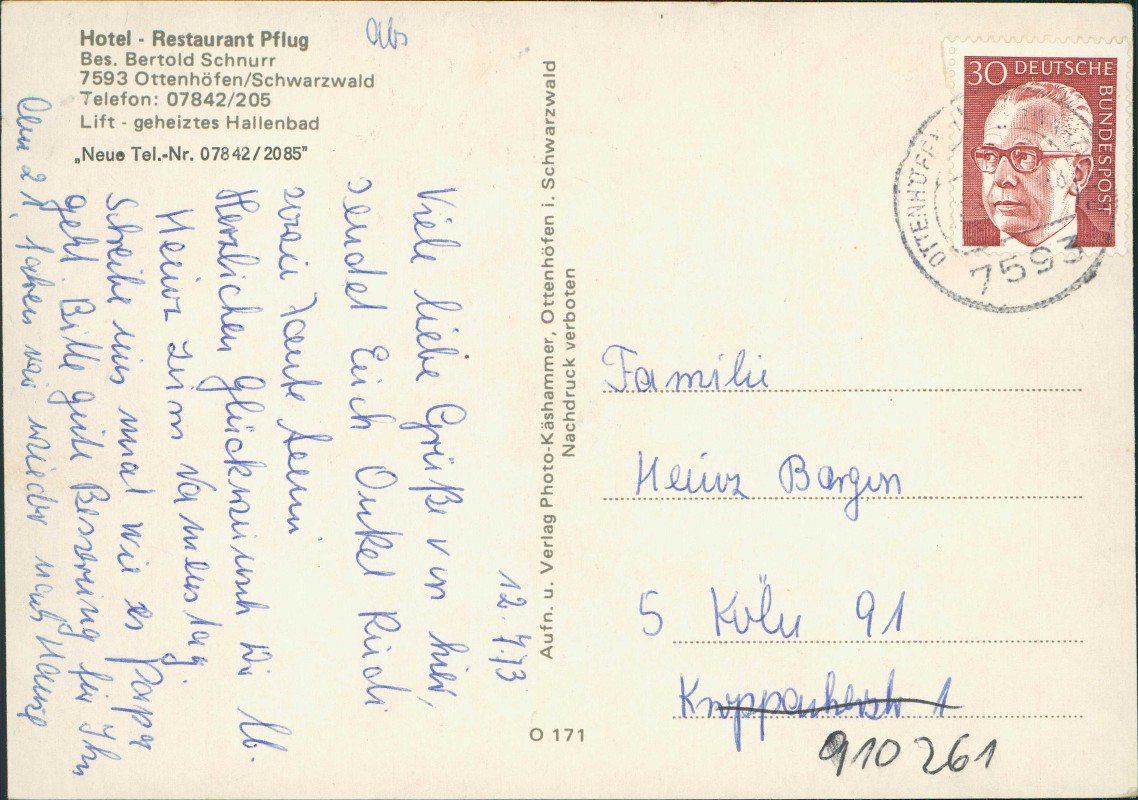 Hotel - Restaurant Pflug
Bes. Bertold Schnurr
7593 Ottenhöfen/Schwarzwald
Telefon: 07842/205
Lift - geheiztes Hallenbad
„Neue Tel.-Nr. 07842/2085"
Abs
12.7.73
Viele liebe Grüße von hier,
sendet Euch Onkel Rudi
sowie Tante Aenni
Herzlichen Glückwunsch Dir lb.
Heinz zum Namenstag.
Schreibe uns mal wie es Papa
geht Bitte gute Besserung für Ihn
Am 21. fahren wir wieder nach Hause
Aufn. u. Verlag Photo-Käshammer, Ottenhöfen i. Schwarzwald
Nachdruck verboten
O 171
30 DEUTSCHE
BUNDESPOST
7593
Familie
Heinz Bargon
5 Köln 91
910 261